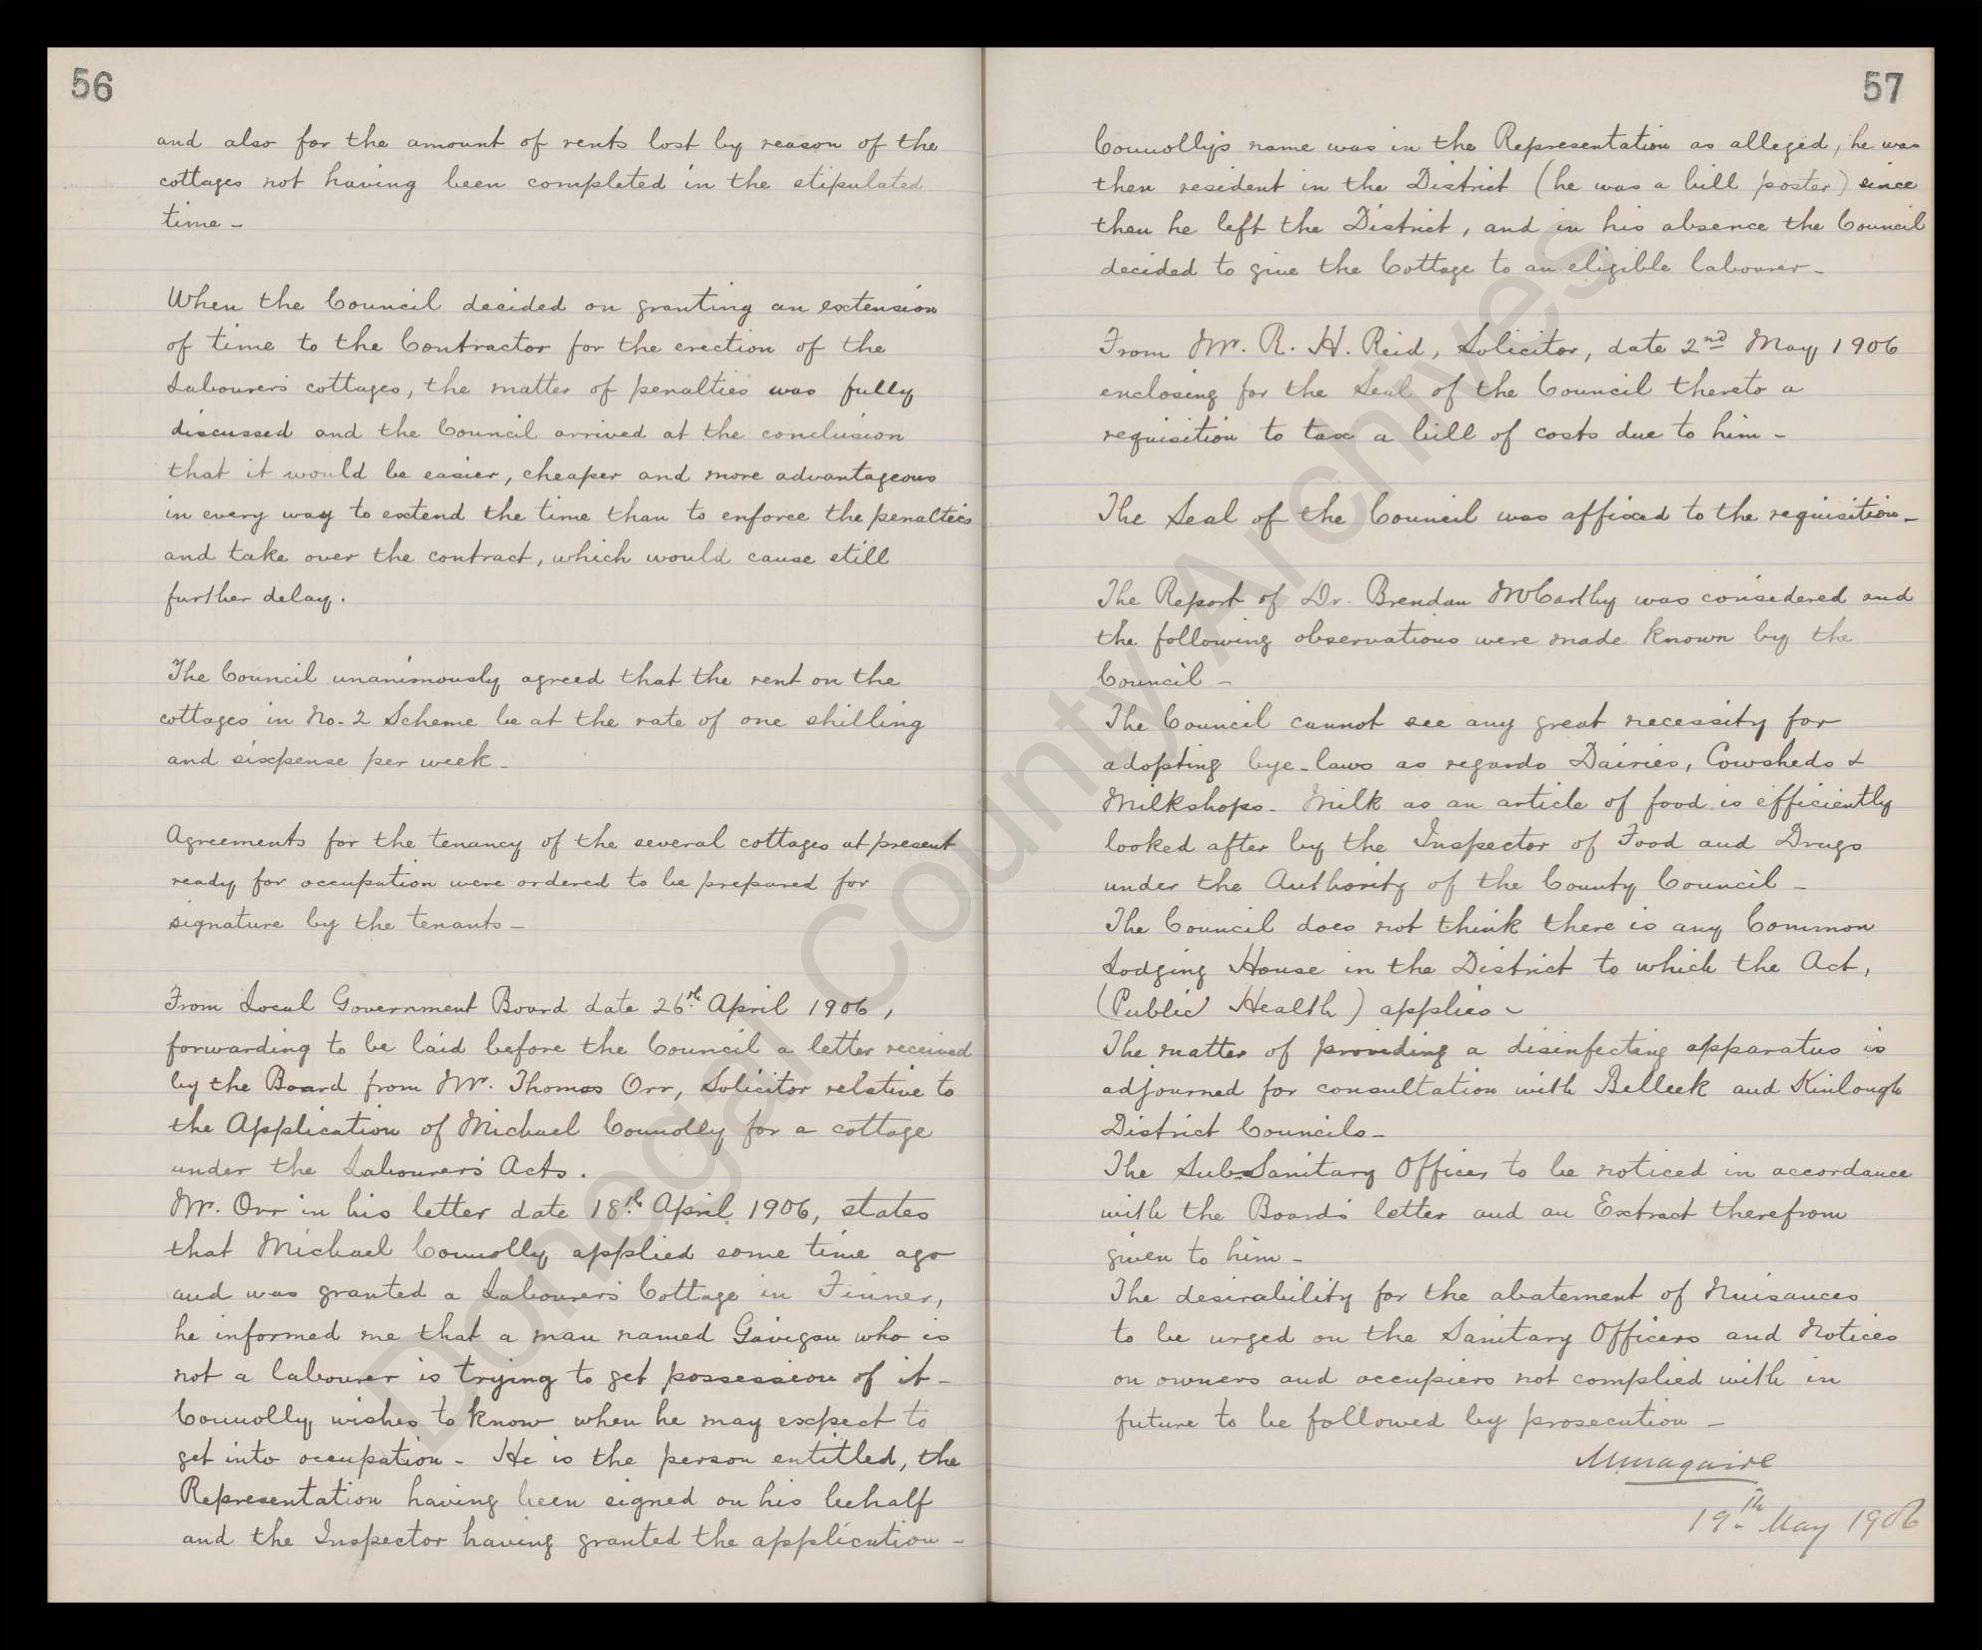 56
and also for the amount of rents lost by reason of the
cottages not having been completed in the stipulated
time -
When the Council decided on granting an extension
of time to the Contractor for the erection of the
Labourers cottages, the matter of penalties was fully
discussed and the Council arrived at the conclusion
that it would be easier, cheaper and more advantageous
in every way to extend the time than to enforce the penalties
and take over the contract, which would cause still
further delay.
The Council unanimously agreed that the rent on the
cottages in No. 2 Scheme be at the rate of one shilling
and sixpense per week -
Agreements for the tenancy of the several cottages at present
ready for occupation were ordered to be prepared for
signature by the tenants -
From Local Government Board date 26th April 1906,
forwarding to be laid before the Council a letter received
by the Board from Mr. Thomas Orr, Solicitor relative to
the Application of Michael Connolly for a cottage
under the Labourers' Acts.
Mr. Orr in his letter date 18th April 1906, states
that Michael Connolly applied some time ago
and was granted a Labourers Cottage in Finner,
he informed me that a man named Gavigan who is
not a labourer is trying to get possession of it -
Connolly wishes to know when he may expect to
get into occupation - He is the person entitled, the
Representation having been signed on his behalf
and the Inspector having granted the application -
57
Connolly's name was in the Representation as alleged, he was
then resident in the District (he was a bill poster) since
then he left the District, and in his absence the Council
decided to give the Cottage to an eligible labourer -
From Mr. R. H. Reid, Solicitor, date 2nd May 1906
enclosing for the Seal of the Council thereto a
requisition to tax a bill of costs due to him -
The Seal of the Council was affixed to the requisition -
The Report of Dr. Brendan McCarthy was considered and
the following observations were made known by the
Council -
The Council cannot see any great necessity for
adopting bye-laws as regards Dairies, Cowsheds &
Milkshops - Milk as an article of food is efficiently
looked after by the Inspector of Food and Drugs
under the Authority of the County Council -
The Council does not think there is any Common
Lodging House in the District to which the Act,
(Public Health) applies -
The matter of providing a disinfecting apparatus is
adjourned for consultation with Belleek and Kinlough
District Councils -
The Sub-Sanitary Officer to be noticed in accordance
with the Board's letter and an Extract therefrom
given to him -
The desirability for the abatement of Nuisances
to be urged on the Sanitary Officers and Notices
on owners and occupiers not complied with in
future to be followed by prosecution -
19th May 1906
Donegal County Archives